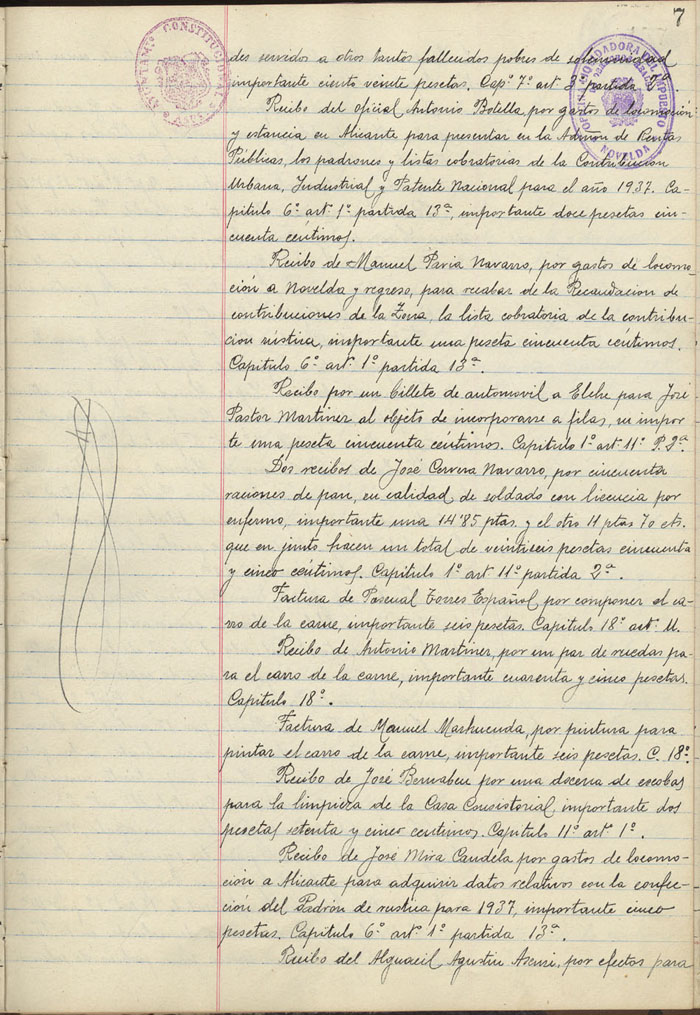 7
AYUNTAMº CONSTITUCIONAL
OFICINA LIQUIDADORA DEL IMPUESTO
NOVELDA
des servidos a otros tantos fallecidos pobres de solemnidad
importante ciento veinte pesetas. Capº 7º art 3 partida 2ª
Recibo del oficial Antonio Botella, por gastos de locomoción
y estancia en Alicante para presentar en la Admón de Rentas
Públicas, los padrones y listas cobratorias de la Contribucion
Urbana, Industrial y Patente Nacional para el año 1937. Ca-
pitulo 6º art. 1º partida 13ª, importante doce pesetas cin-
cuenta céntimos.
Recibo de Manuel Pavia Navarro, por gastos de locomo-
ción a Novelda y regreso, para recabar de la Recaudacion de
contribuciones de la Zona, la lista cobratoria de la contribu-
cion rústica, importante una peseta cincuenta céntimos.
Capitulo 6º art. 1º partida 13ª.
Recibo por un billete de automovil a Elche para José
Pastor Martinez al objeto de incorporarse a filas, su impor
te una peseta cincuenta céntimos. Capitulo 1º art. 11º P. 2ª.
Dos recibos de José Cervera Navarro, por cincuenta
raciones de pan, en calidad de soldado con licencia por
enfermo, importante una 14'85 ptas. y el otro 11 ptas 70 cts.
que en junto hacen un total de veintiseis pesetas cincuenta
y cinco céntimos. Capitulo 1º art 11º partida 2ª.
Factura de Pascual Torres Español por componer el ca-
rro de la carne, importante seis pesetas. Capitulo 18º art. U.
Recibo de Antonio Martinez, por un par de ruedas pa-
ra el carro de la carne, importante cuarenta y cinco pesetas.
Capitulo 18º.
Factura de Manuel por pintura para
pintar el carro de la carne, importante seis pesetas. C. 18º
Recibo de José Bernabeu por una docena de escobas
para la limpieza de la Casa Consistorial importante dos
pesetas setenta y cinco centimos. Capitulo 11º art 1º.
Recibo de José Mira Candela por gastos de locomo-
ción a Alicante para adquirir datos relativos con la confec-
ción del Padrón de rustica para 1937, importante cinco
pesetas. Capitulo 6º art. 1º partida 13ª.
Recibo del Alguacil Agustin Asensi, por efectos para